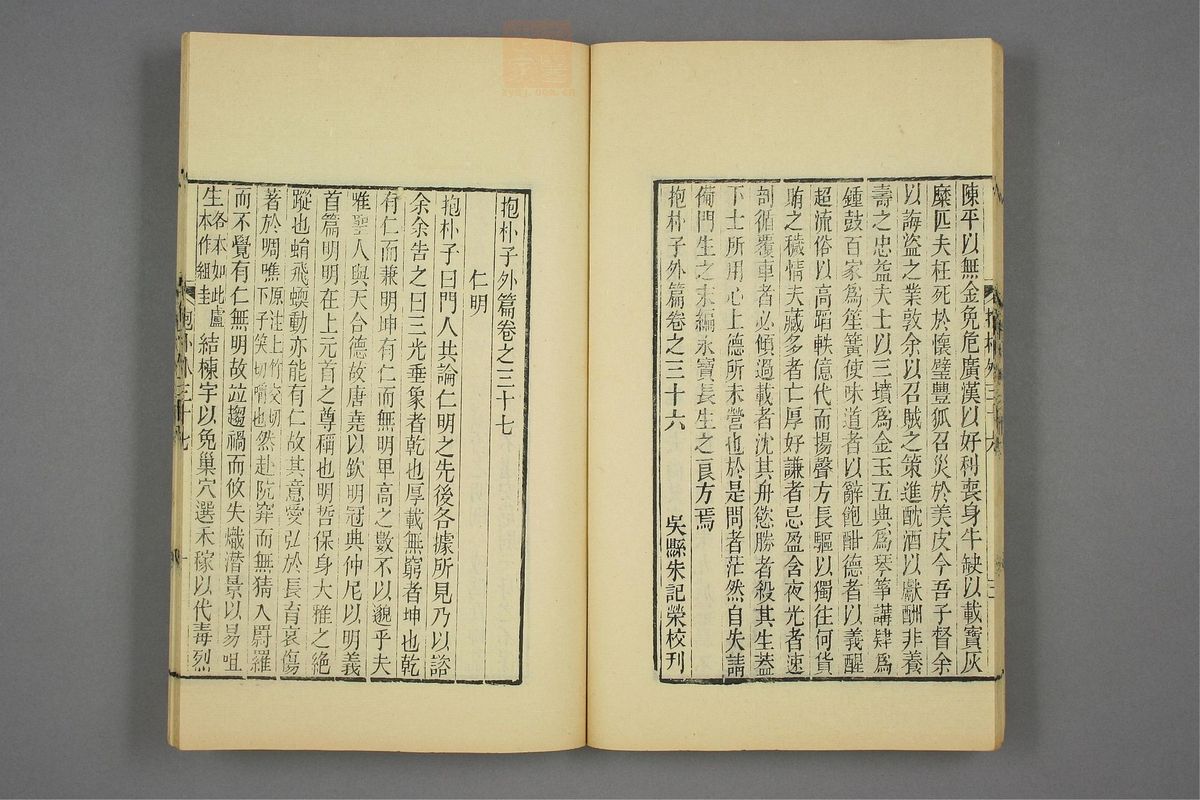 陳平以無金免危廣漢以好利喪身牛缺以載寶灰
糜匹夫枉死於懷璧豐狐召災於美皮今吾子督余
以誨盜之業敦余以召賊之策進酖酒以獻酬非養
壽之忠益夫士以三墳為金玉五典為琴箏講肄為
鍾鼓百家為笙簧使味道者以辭飽酣德者以義醒
超流俗以高蹈軼億代而揚聲方長驅以獨往何貨
賄之穢情夫藏多者亡厚好謙者忌盈含夜光者速
剖循覆車者必傾過載者沈其舟慾勝者殺其生蓋
下士所用心上德所未營也於是問者茫然自失請
備門生之末編永寶長生之良方焉
抱朴子外篇卷之三十六
吳縣朱記榮校刊
抱朴子外篇卷之三十七
仁明
抱朴子曰門人共論仁明之先後各據所見乃以諮
余余告之曰三光垂象者乾也厚載無窮者坤也乾
有仁而兼明坤有仁而無明卑高之數不以邈乎夫
唯聖人與天合德故唐堯以欽明冠典仲尼以明義
首篇明明在上元首之尊稱也明哲保身大雅之絕
蹤也蛕飛蝡動亦能有仁故其意愛弘於長育哀傷
著於啁噍原注上竹交切下子笑切嚼也然赴阬穽而無猜入罻羅
而不覺有仁無明故竝趨禍而攸失熾潛景以易咀
生各本如此盧本作組圭結棟宇以免巢穴選禾稼以代毒烈
抱朴外三十七